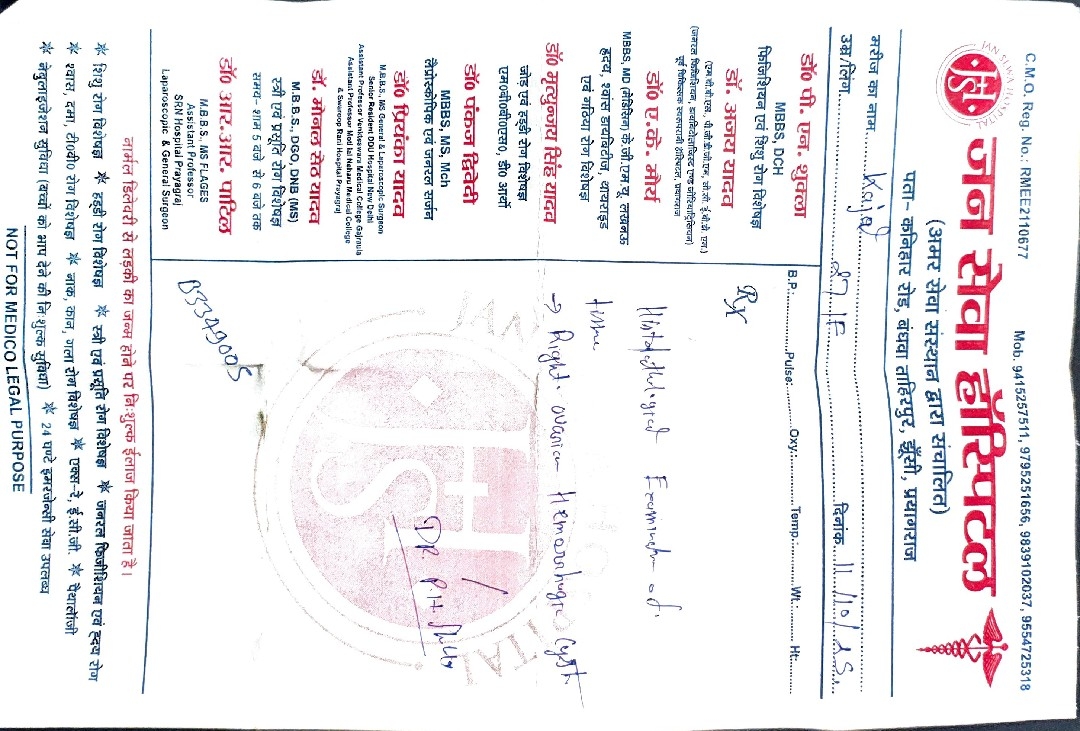 C.M.O. Reg. No.: RMEE2110677
Mob. 9415257511, 9795251656, 9839102037, 9554725318
JAN SEWA HOSPITAL
जन सेवा हॉस्पिटल
(अमर सेवा संस्थान द्वारा संचालित)
पता- कनिहार रोड, बंधवा ताहिरपुर, झूँसी, प्रयागराज
मरीज का नाम Kajal
उम्र/लिंग 27/F दिनांक 11/10/25
डॉ० पी. एन. शुक्ला
MBBS, DCH
फिजिशियन एवं शिशु रोग विशेषज्ञ
डॉ. अजय यादव
डॉ० ए.के. मौर्य
MBBS, MD (मेडिसिन) के.जी.एम.यू. लखनऊ
हृदय, श्वास डायबिटीज, थायराइड
एवं गठिया रोग विशेषज्ञ
डॉ० मृत्युन्जय सिंह यादव
एम०बी०बी०एस०, डी० आर्थो
जोड़ एवं हड्डी रोग विशेषज्ञ
डॉ० पंकज द्विवेदी
MBBS, MS, Mch
लैप्रोस्कोपिक एवं जनरल सर्जन
डॉ० प्रियंका यादव
M.B.B.S., MS General & Laparoscopic Surgeon
Senior Resident DDU Hospital New Delhi
Assistant Professor Venkteswara Medical College Gajraula
Assistant Professor Moti Lal Nehuru Medical College
& Swaroop Rani Hospital Prayagraj
डॉ. मेनल सेठ यादव
M.B.B.S., DGO, DNB (MS)
स्त्री एवं प्रसूति रोग विशेषज्ञ
समय- शाम 5 बजे से 6 बजे तक
डॉ० आर.आर. पाटिल
M.B.B.S. MS FLAGES
Assistant Professor
SRN Hospital Prayagraj
Laparoscopic & General Surgeon
B.P.: Pulse: Oxy. Temp. Wt.: Ht:
Rx
Histopathological Examination of
tissue
→ Right ovarian Hemorrhagic Cyst
B3349005
नार्मल डिलेवरी से लड़की का जन्म होने पर निःशुल्क ईलाज किया जाता है।
* शिशु रोग विशेषज्ञ * हड्डी रोग विशेषज्ञ * स्त्री एवं प्रसूति रोग विशेषज्ञ * जनरल फिजीशियन एवं हृदय रोग
* श्वास, दमा, टी०बी० रोग विशेषज्ञ * नाक, कान, गला रोग विशेषज्ञ * एक्स-रे, ई.सी.जी. * पैथालॉजी
* नेबुलाइजेशन सुविधा (बच्चों को भाप देने की निःशुल्क सुविधा) * 24 घण्टे इमरजेन्सी सेवा उपलब्ध
NOT FOR MEDICO LEGAL PURPOSE